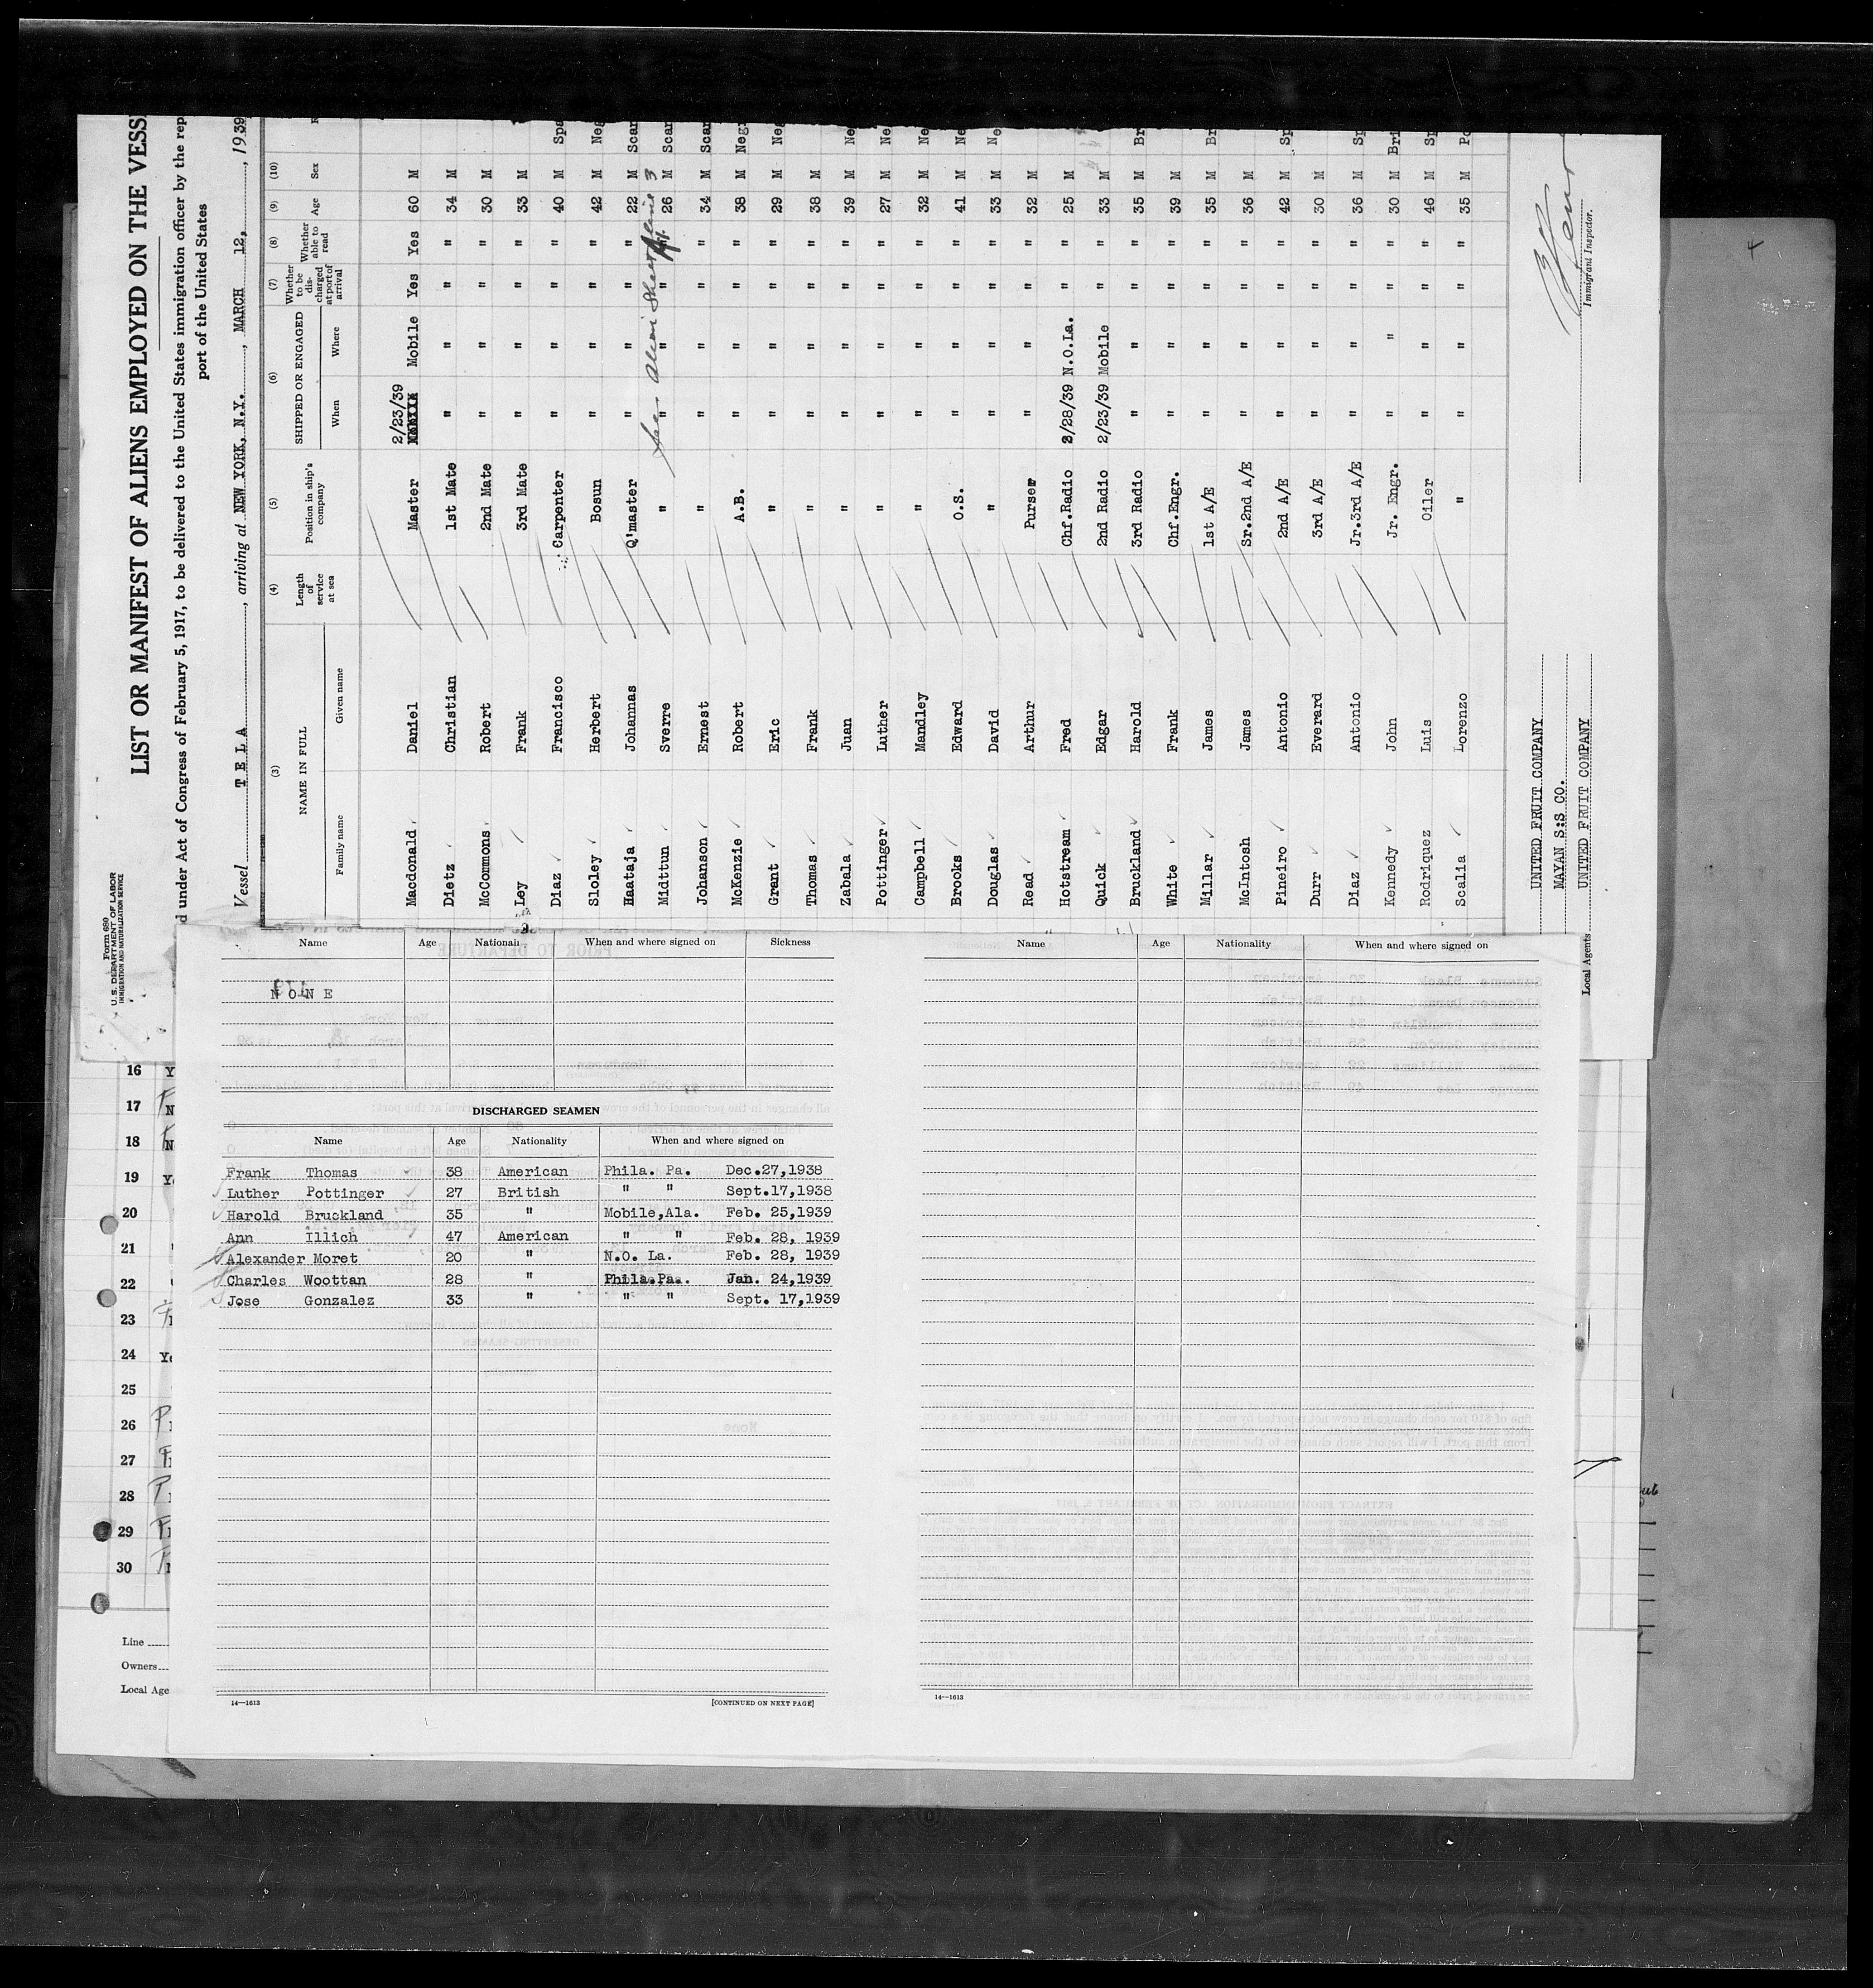 Form 680
U. S. DEPARTMENT OF LABOR
IMMIGRATION AND NATURALIZATION SERVICE
LIST OR MANIFEST OF ALIENS EMPLOYED ON THE VESS
d under Act of Congress of February 5, 1917, to be delivered to the United States immigration officer by the rep
port of the United States
Vessel TELA, arriving at NEW YORK, N.Y., MARCH 12, 1939
(3) (4) (5) (6) (7) (8) (9) (10)
NAME IN FULL Length of service at sea Position in ship's company SHIPPED OR ENGAGED Whether to be discharged at port of arrival Whether able to read Age Sex
Family name Given name When Where
Macdonald Daniel Master 2/23/39 Mobile Yes Yes 60 M
Dietz Christian 1st Mate " " " " 34 M
McCommons Robert 2nd Mate " " " " 30 M
Ley Frank 3rd Mate " " " " 33 M
Diaz Francisco Carpenter " " " " 40 M Spa
Sloley Herbert Bosun " " " " 42 M Neg
Haataja Johannas Q'master " " " " 22 M Scan
Midttun Sverre " " " " " 26 M Scan
Johanson Ernest " " " " " 34 M Scan
McKenzie Robert A.B. " " " " 38 M Negr
Grant Eric " " " " " 29 M Neg
Thomas Frank " " " " " 38 M
Zabala Juan " " " " " 39 M Ne
Pottinger Luther " " " " " 27 M Ne
Campbell Mandley " " " " " 32 M Ne
Brooks Edward O.S. " " " " 41 M Ne
Douglas David " " " " " 33 M Ne
Read Arthur Purser " " " " 32 M
Hotstream Fred Chf.Radio 2/28/39 N.O.La. " " 25 M
Quick Edgar 2nd Radio 2/23/39 Mobile " " 33 M
Bruckland Harold 3rd Radio " " " " 35 M Br
White Frank Chf.Engr. " " " " 39 M
Millar James 1st A/E " " " " 35 M Br
McIntosh James Sr.2nd A/E " " " " 36 M
Pineiro Antonio 2nd A/E " " " " 42 M Sp
Durr Everard 3rd A/E " " " " 30 M
Diaz Antonio Jr.3rd A/E " " " " 36 M Sp
Kennedy John Jr. Engr. " " " " 30 M Bri
Rodriquez Luis Oiler " " " " 46 M Sp
Scalia Lorenzo " " " " " 35 M Po
UNITED FRUIT COMPANY
MAYAN S:S CO.
Local Agents UNITED FRUIT COMPANY
Immigrant Inspector.
Name Age Nationali When and where signed on Sickness
NONE
DISCHARGED SEAMEN
Name Age Nationality When and where signed on
Frank Thomas 38 American Phila. Pa. Dec.27,1938
Luther Pottinger 27 British " " Sept.17,1938
Harold Bruckland 35 " Mobile,Ala. Feb. 25,1939
Ann Illich 47 American " " Feb. 28, 1939
Alexander Moret 20 " N.O. La. Feb. 28, 1939
Charles Woottan 28 " Phila.Pa.. Jan. 24,1939
Jose Gonzalez 33 " " " Sept. 17,1939
14—1613
[CONTINUED ON NEXT PAGE]
Name Age Nationality When and where signed on
14—1613
16 Y
17 N
18 N
19 Y
20
21 "
22
23
24 Ye
25
26
27
28
29
30
Line
Owners
Local Age